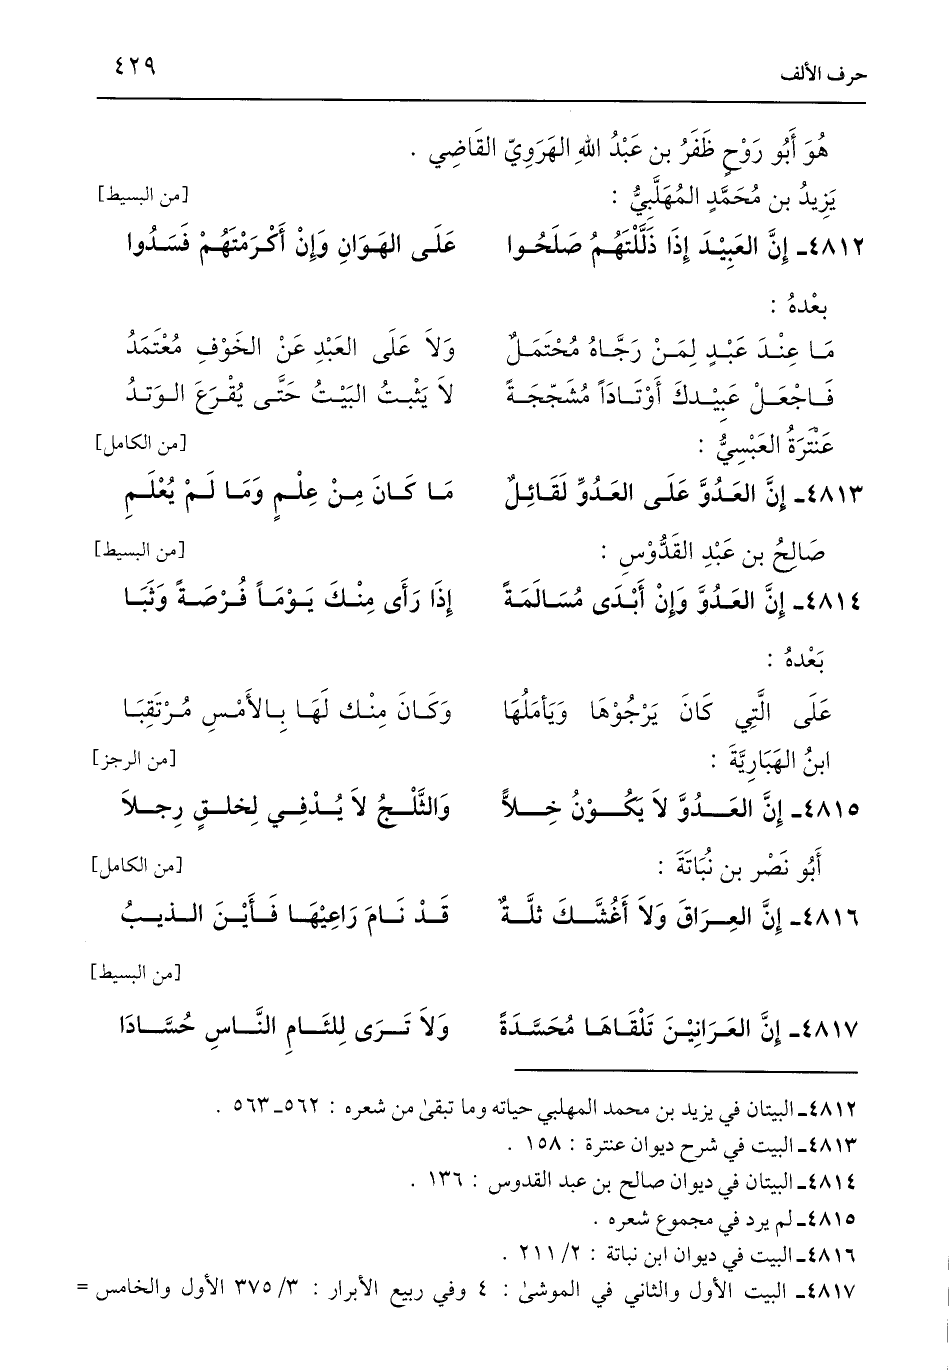 حرف الألف ٤٢٩
هُوَ أَبُو رَوْحٍ ظَفَرُ بن عَبْدُ اللهِ الهَرَوِيّ القَاضِي .
يَزِيدُ بن مُحَمَّدٍ المُهَلَّبِيُّ : [من البسيط]
٤٨١٢ـ إِنَّ العَبِيْدَ إِذَا ذَلَّلْتَهُمُ صَلَحُوا عَلَى الهَوَانِ وَإِنْ أَكْرَمْتَهُمْ فَسَدُوا
بعْدهُ :
مَا عِنْدَ عَبْدٍ لِمَنْ رَجَّاهُ مُحْتَمَلٌ وَلاَ عَلَى العَبْدِ عَنْ الخَوْفِ مُعْتَمَدُ
فَاجْعَلْ عَبِيْدكَ أَوْتَادَاً مُشَجَّجَةً لاَ يَثْبتُ البَيْتُ حَتَّى يُقْرَعَ الوَتدُ
عَنْتَرَةُ العَبْسِيُّ : [من الكامل]
٤٨١٣ـ إِنَّ العَدُوَّ عَلَى العَدُوِّ لَقَائِلٌ مَا كَانَ مِنْ عِلْمٍ وَمَا لَمْ يُعْلَمِ
صَالِحُ بن عَبْدِ القَدُّوْسِ : [من البسيط]
٤٨١٤ـ إِنَّ العَدُوَّ وَإِنْ أَبْدَى مُسَالَمَةً إِذَا رَأَى مِنْكَ يَوْمَاً فُرْصَةً وَثَبَا
بَعْدهُ :
عَلَى الَّتِي كَانَ يَرْجُوْهَا وَيَأملُهَا وَكَانَ مِنْكَ لَهَا بِالأَمْسِ مُرْتَقِبَا
ابنُ الهَبَارِيَّةَ : [من الرجز]
٤٨١٥ـ إِنَّ العَدُوَّ لاَ يَكُوْنُ خِلاًّ وَالثَّلْجُ لاَ يُدْفِي لِخلقٍ رِجلاَ
أَبُو نَصْر بن نُبَاتَةَ : [من الكامل]
٤٨١٦ـ إِنَّ العِرَاقَ وَلاَ أَغُشَّكَ ثلَّةٌ قَدْ نَامَ رَاعِيْهَا فَأَيْنَ الذيبُ
[من البسيط]
٤٨١٧ـ إِنَّ العَرَانِيْنَ تَلْقَاهَا مُحَسَّدَةً وَلاَ تَرَى لِلئَامِ النَّاسِ حُسَّادَا
٤٨١٢ـ البيتان في يزيد بن محمد المهلبي حياته وما تبقىٰ من شعره : ٥٦٢ـ ٥٦٣ .
٤٨١٣ـ البيت في شرح ديوان عنترة : ١٥٨ .
٤٨١٤ـ البيتان في ديوان صالح بن عبد القدوس : ١٣٦ .
٤٨١٥ـ لم يرد في مجموع شعره .
٤٨١٦ـ البيت في ديوان ابن نباتة : ٢/ ٢١١ .
٤٨١٧ـ البيت الأول والثاني في الموشىٰ : ٤ وفي ربيع الأبرار : ٣/ ٣٧٥ الأول والخامس =